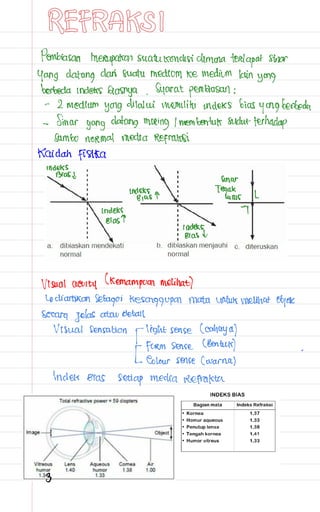 REFRAKSI
Pembiasan merupakan suatu kondisi dimana terdapat sinar
yang datang dari suatu medium ke medium lain yang
berbeda indeks biasnya. Syarat pembiasan:
- 2 medium yang dilalui memiliki indeks bias yang berbeda
- Sinar yang datang miring / membentuk sudut terhadap
sumbu normal media refraksi
Kaidah Fisika
indeks Bias ↓
indeks Bias ↑
indeks Bias ↑
indeks Bias ↓
Sinar Tegak lurus
a. dibiaskan mendekati normal
b. dibiaskan menjauhi normal
c. diteruskan
Visual acuity (kemampuan melihat)
diartikan sebagai kesanggupan mata untuk melihat objek
secara jelas atau detail
Visual Sensation
light sense (cahaya)
Form sense (Bentuk)
Colour sense (warna)
Indek Bias setiap media refrakta
Total refractive power = 59 diopters
Image
Object
Vitreous humor 1.34
Lens 1.40
Aqueous humor 1.33
Cornea 1.38
Air 1.00
INDEKS BIAS
Bagian mata Indeks Refraksi
• Kornea 1.37
• Humor aqueous 1.33
• Penutup lensa 1.38
• Tengah kornea 1.41
• Humor vitreus 1.33
3